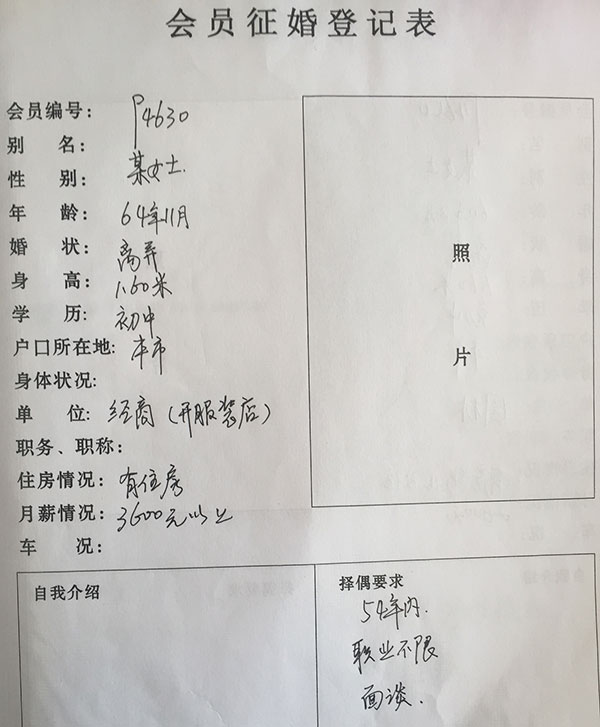 会员征婚登记表
会员编号: P4630
别 名: 某女士.
性 别:
年 龄: 64年11月
婚 状: 离异
身 高: 1.60米
学 历: 初中
户口所在地: 本市
身体状况:
单 位: 经商(开服装店)
职务、职称:
住房情况: 有住房
月薪情况: 3600元以上
车 况:
照
片
自我介绍
择偶要求
54年内.
职业不限
面谈.